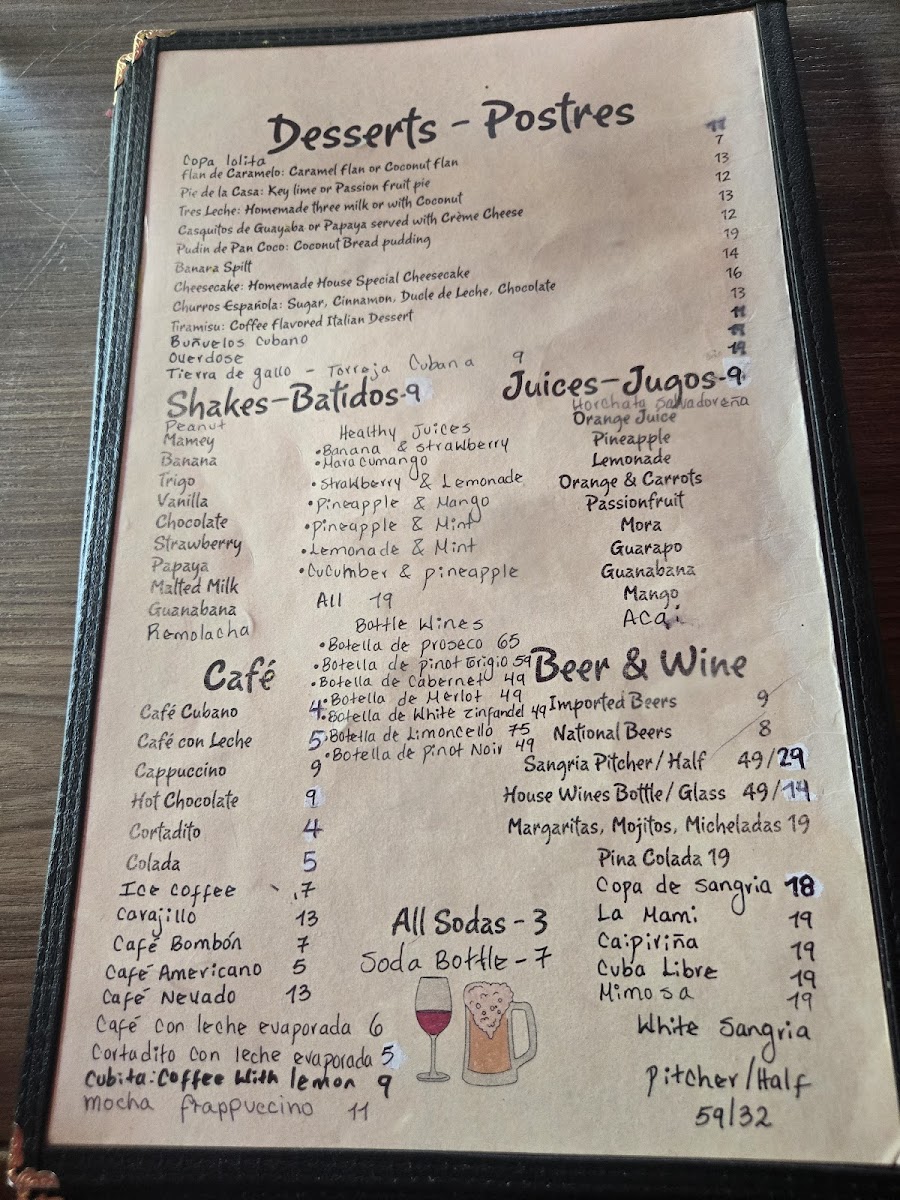 Desserts - Postres
Copa lolita 11
Flan de Caramelo: Caramel flan or Coconut flan 7
Pie de la Casa: Key lime or Passion fruit pie 13
Tres Leche: Homemade three milk or with Coconut 12
Casquitos de Guayaba or Papaya served with Crème Cheese 13
Pudin de Pan Coco: Coconut Bread pudding 12
Banara Spilt 19
Cheesecake: Homemade House Special Cheesecake 14
Churros Española: Sugar, Cinnamon, Ducle de Leche, Chocolate 16
Tiramisu: Coffee flavored Italian Dessert 13
Buñuelos Cubano 11
Overdose 19
Tierra de gallo - Torreja Cubana 9 19
Shakes-Batidos-9
Peanut
Mamey
Banana
Trigo
Vanilla
Chocolate
Strawberry
Papaya
Malted Milk
Guanabana
Remolacha
Healthy Juices
•Banana & strawberry
•Maracumango
•Strawberry & Lemonade
•Pineapple & Mango
•Pineapple & Mint
•Lemonade & Mint
•Cucumber & pineapple
All 19
Juices-Jugos-9
Horchata Salvadoreña
Orange Juice
Pineapple
Lemonade
Orange & Carrots
Passionfruit
Mora
Guarapo
Guanabana
Mango
Acai
Bottle Wines
•Botella de proseco 65
•Botella de pinot Grigio 59
•Botella de Cabernet 49
•Botella de Merlot 49
•Botella de White Zinfandel 49
•Botella de Limoncello 75
•Botella de pinot Noir 49
Café
Café Cubano 4
Café con Leche 5
Cappuccino 9
Hot Chocolate 9
Cortadito 4
Colada 5
Ice coffee 7
Carajillo 13
Café Bombón 7
Café Americano 5
Café Nevado 13
Café con leche evaporada 6
Cortadito con leche evaporada 5
Cubita: Coffee With lemon 9
mocha frappuccino 11
All Sodas - 3
Soda Bottle - 7
Beer & Wine
Imported Beers 9
National Beers 8
Sangria Pitcher/Half 49/29
House Wines Bottle/Glass 49/14
Margaritas, Mojitos, Micheladas 19
Pina Colada 19
Copa de sangria 18
La Mami 19
Caipiriña 19
Cuba Libre 19
Mimosa 19
White Sangria
Pitcher/Half
59/32